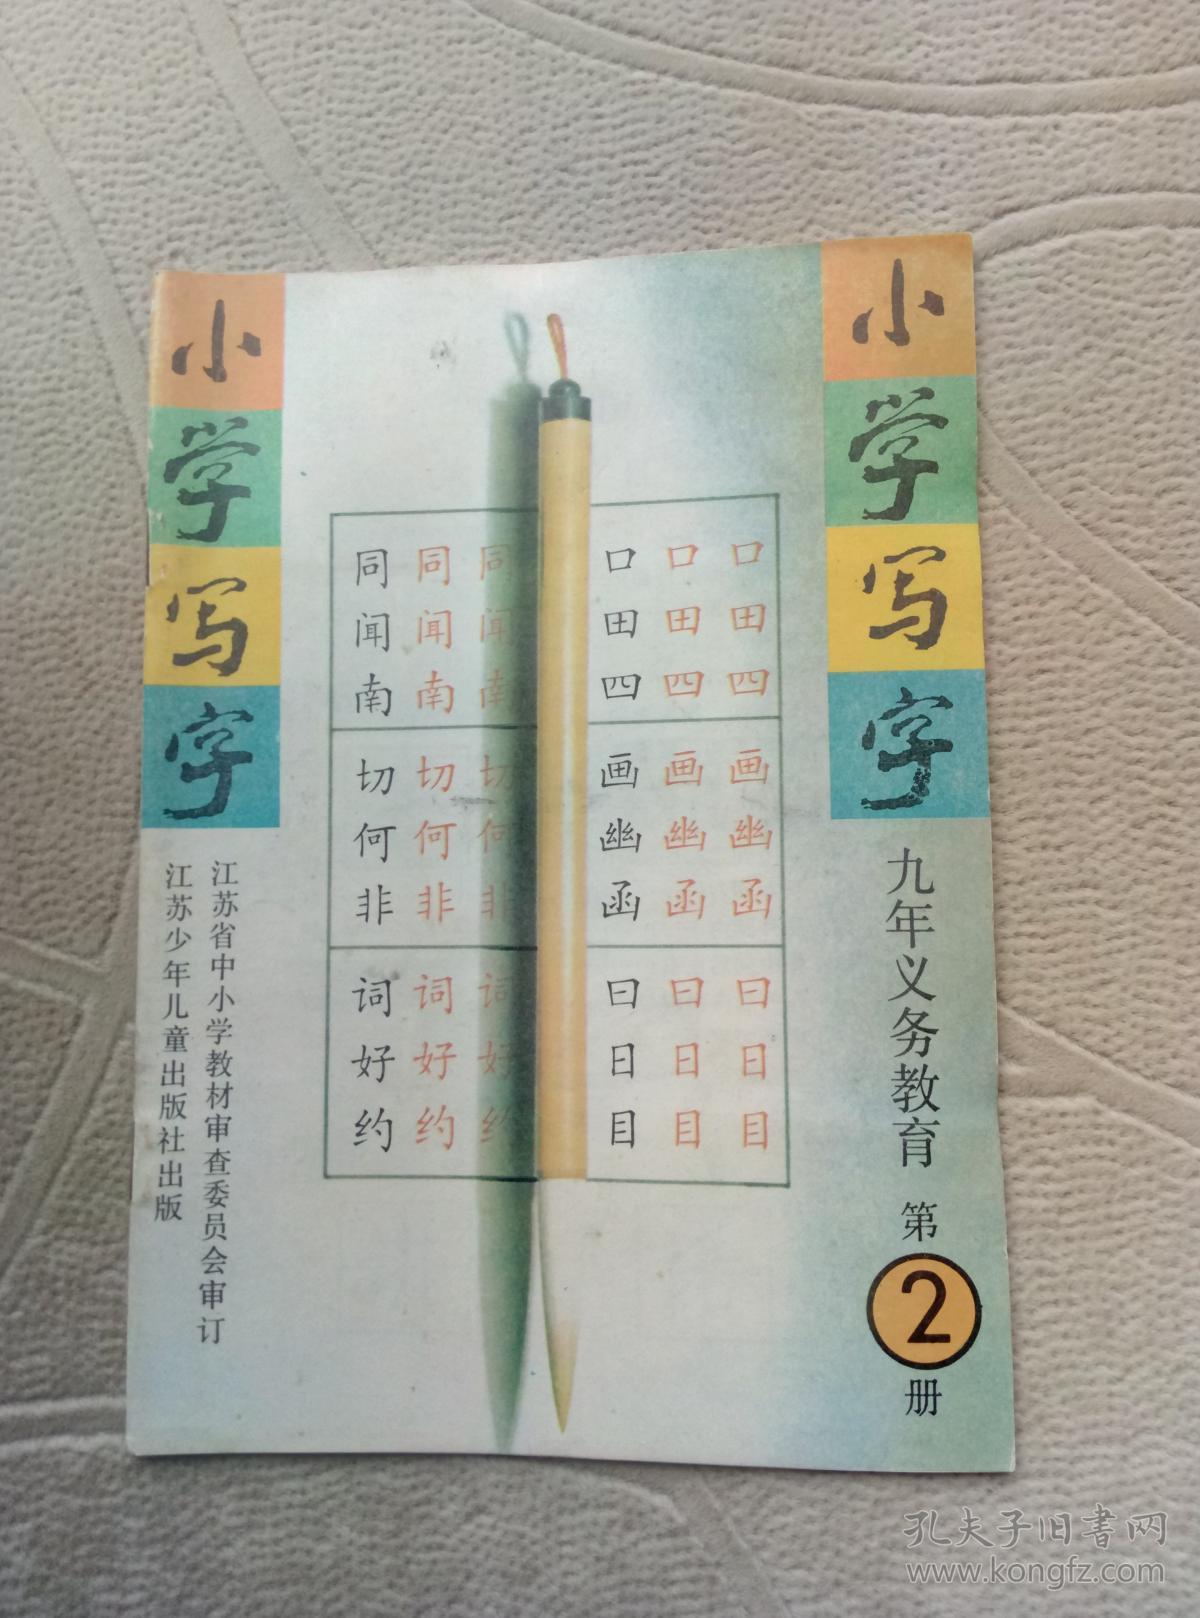 小学写字
小学写字
九年义务教育 第2册
江苏省中小学教材审查委员会审订
江苏少年儿童出版社出版
同 同 同
闻 闻 闻
南 南 南
切 切 切
何 何 何
非 非 非
词 词 词
好 好 好
约 约 约
口 口 口
田 田 田
四 四 四
画 画 画
幽 幽 幽
函 函 函
曰 曰 曰
日 日 日
目 目 目
孔夫子旧書网
www.kongfz.com